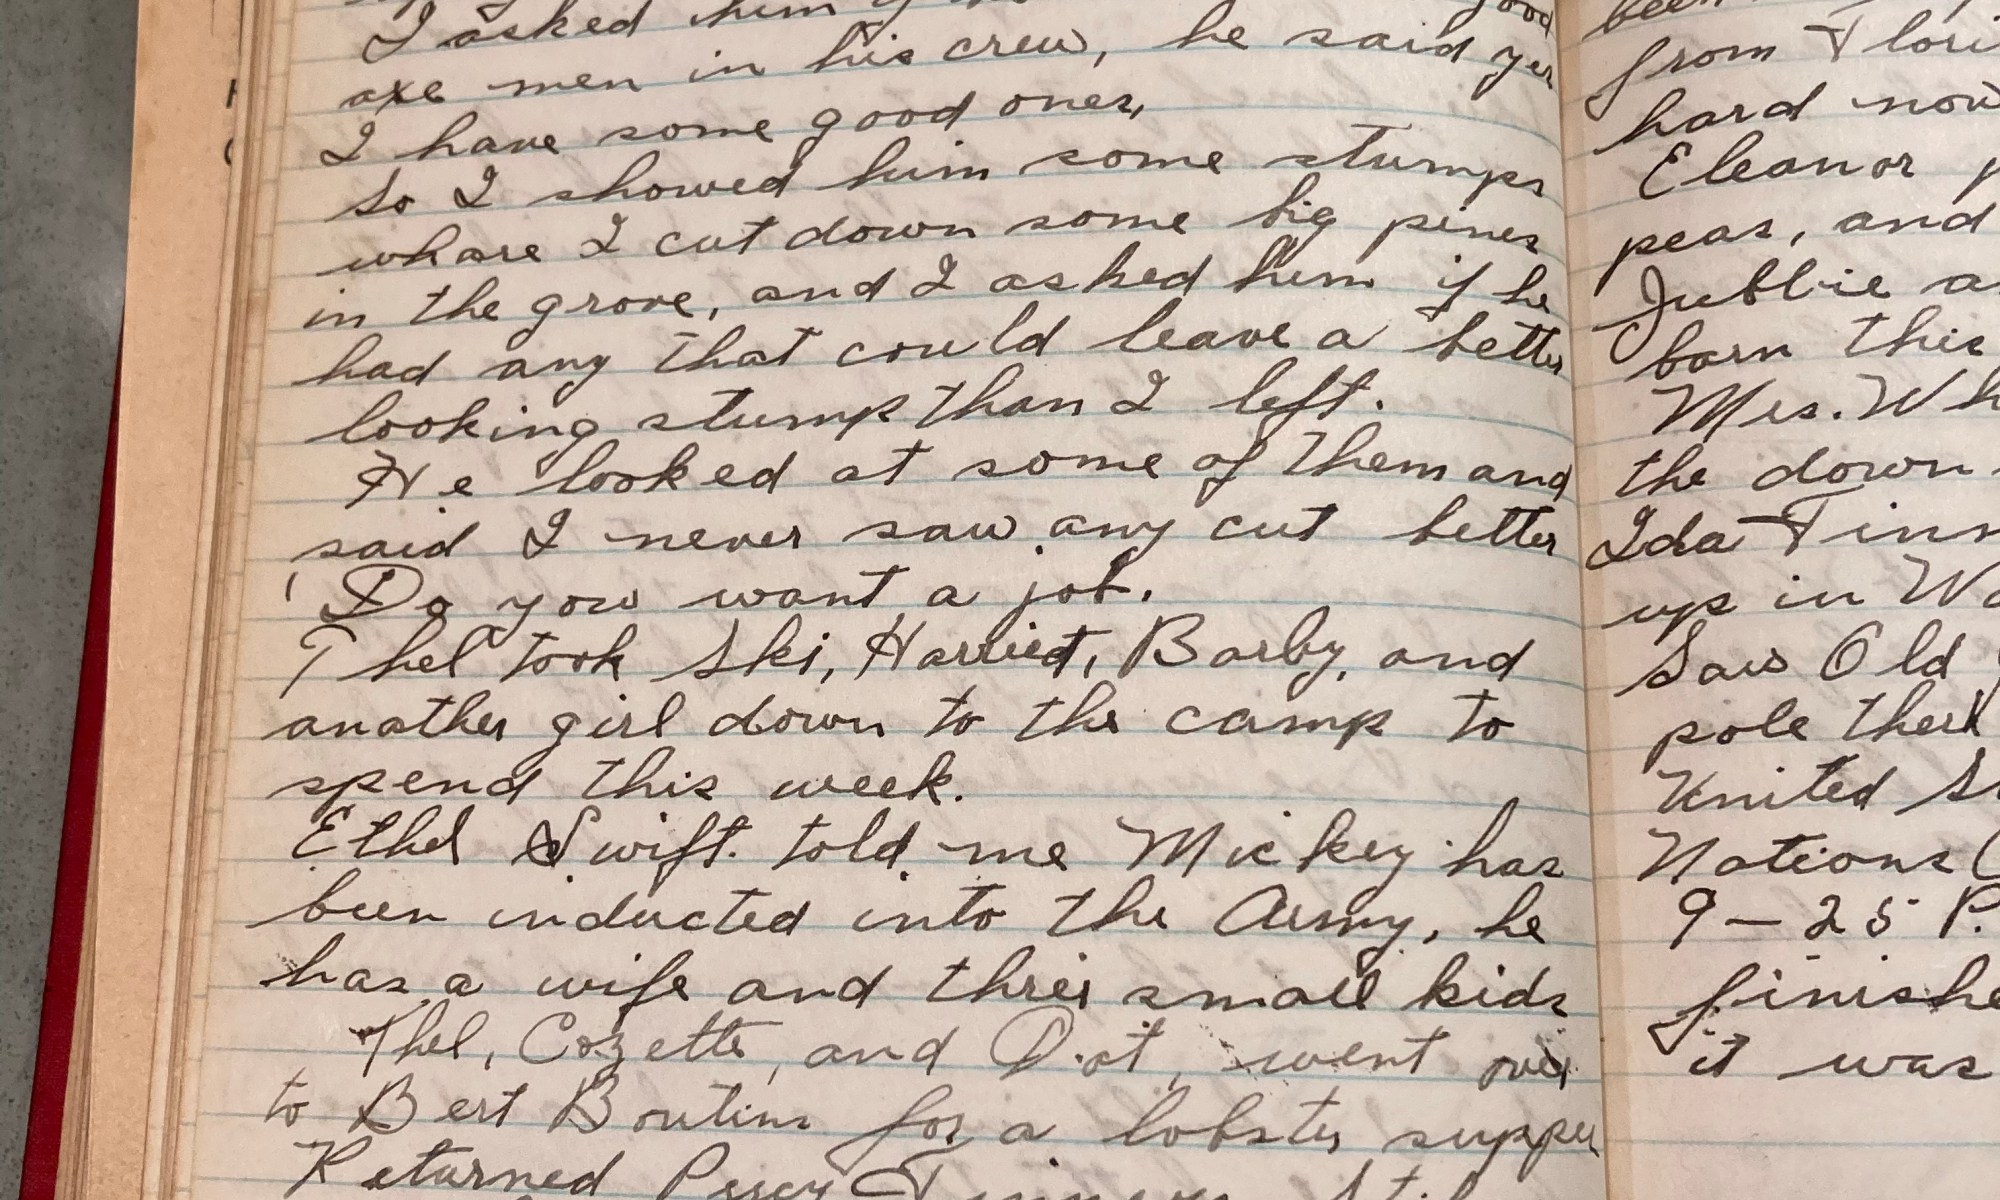 I asked him good
axe men in his crew, he said yes
I have some good ones,
So I showed him some stumps
whare I cut down some big pines
in the grove, and I asked him if he
had any that could leave a better
looking stump than I left.
He looked at some of them and
said I never saw any cut better
Do you want a job.
Thel took Ski, Harriet, Barby, and
another girl down to the camp to
spend this week.
Ethel Swift told me Mickey has
been inducted into the Army, he
has a wife and three small kids
Thel, Cozette, and Dot, went over
to Bert Boutins for a lobster supper
Returned Percy
been
from Flori
hard now
Eleanor p
peas, and
Jubbie a
born this
Mrs. Wh
the down
Ida Tinn
up in Wa
Saw Old
pole there
United S
Nations (
9-25 P.
finishe
it was